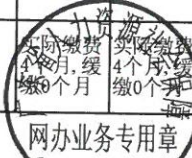 实际缴费
4个月,缓
缴0个月
实际缴费
4个月,缓
缴0个月
人力资源
网办业务专用章